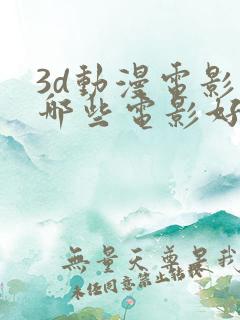 3d動漫電影
哪些電影好
無量天尊是我
未任同意禁止轉載